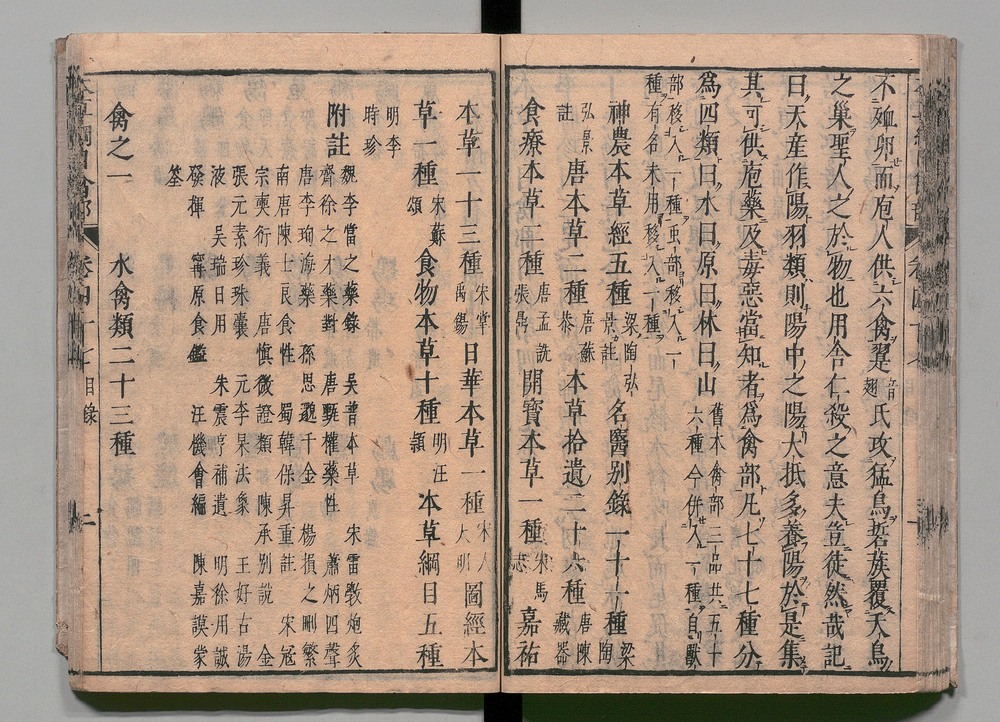 不殈卵而庖人供六禽翨音翅氏攻猛鳥硩族覆夭鳥
之巢聖人之於物也用舍仁殺之意夫豈徒然哉記
曰天産作陽羽類則陽中之陽大抵多養陽於是集
其可供庖藥及毒惡當知者爲禽部凡七十七種分
爲四類曰水曰原曰林曰山舊本禽部三品共五十六種今併入一種自獸
部移入一種虫部移入一種有名未用移入一種
神農本草經五種梁陶弘景註名醫别錄一十一種梁陶
弘景註唐本草二種唐蘇恭本草拾遺二十六種唐陳藏器
食療本草二種唐孟詵張鼎開寶本草一種宋馬志嘉祐
本草一十三種宋掌禹錫日華本草一種宋人大明圖經本
草一種宋蘇頌食物本草十種明汪頴本草綱目五種
明李時珍
附註
魏李當之藥錄 吳普本草 宋雷斆炮炙
齊徐之才藥對 唐甄權藥性 蕭炳四聲
唐李珣海藥 孫思邈千金 楊損之刪繁
南唐陳士良食性 蜀韓保昇重註 宋冦
宗奭衍義 唐慎微證類 陳承别說 金
張元素珍珠囊 元李杲法象 王好古湯
液 吳瑞日用 朱震亨補遺 明徐用誠
發揮 寗原食鑑 汪機會編 陳嘉謨蒙
筌
禽之一 水禽類二十三種